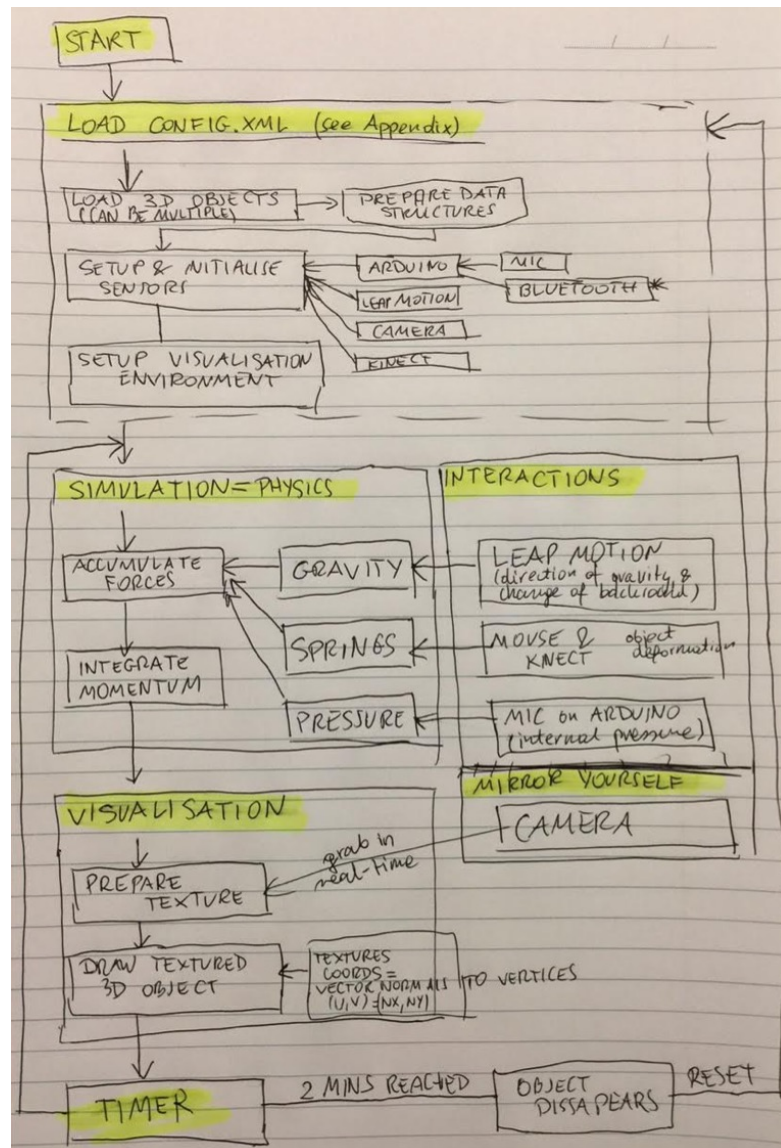 START
LOAD CONFIG.XML (see Appendix)
LOAD 3D OBJECTS
(CAN BE MULTIPLE)
PREPARE DATA
STRUCTURES
SETUP & INITIALISE
SENSORS
ARDUINO
MIC
BLUETOOTH
LEAP MOTION
CAMERA
KINECT
SETUP VISUALISATION
ENVIRONMENT
SIMULATION = PHYSICS
ACCUMULATE
FORCES
GRAVITY
SPRINGS
INTEGRATE
MOMENTUM
PRESSURE
INTERACTIONS
LEAP MOTION
(direction of gravity &
change of
MOUSE & object
KNECT deformation
MIC on ARDUINO
(internal pressure)
MIRROR YOURSELF
CAMERA
grab in
real-time
VISUALISATION
PREPARE
TEXTURE
DRAW TEXTURED
3D OBJECT
TEXTURES
COORDS =
VECTOR NORMALS TO VERTICES
(U,V) = (NX,NY)
TIMER
2 MINS REACHED
OBJECT
DISSAPEARS
RESET